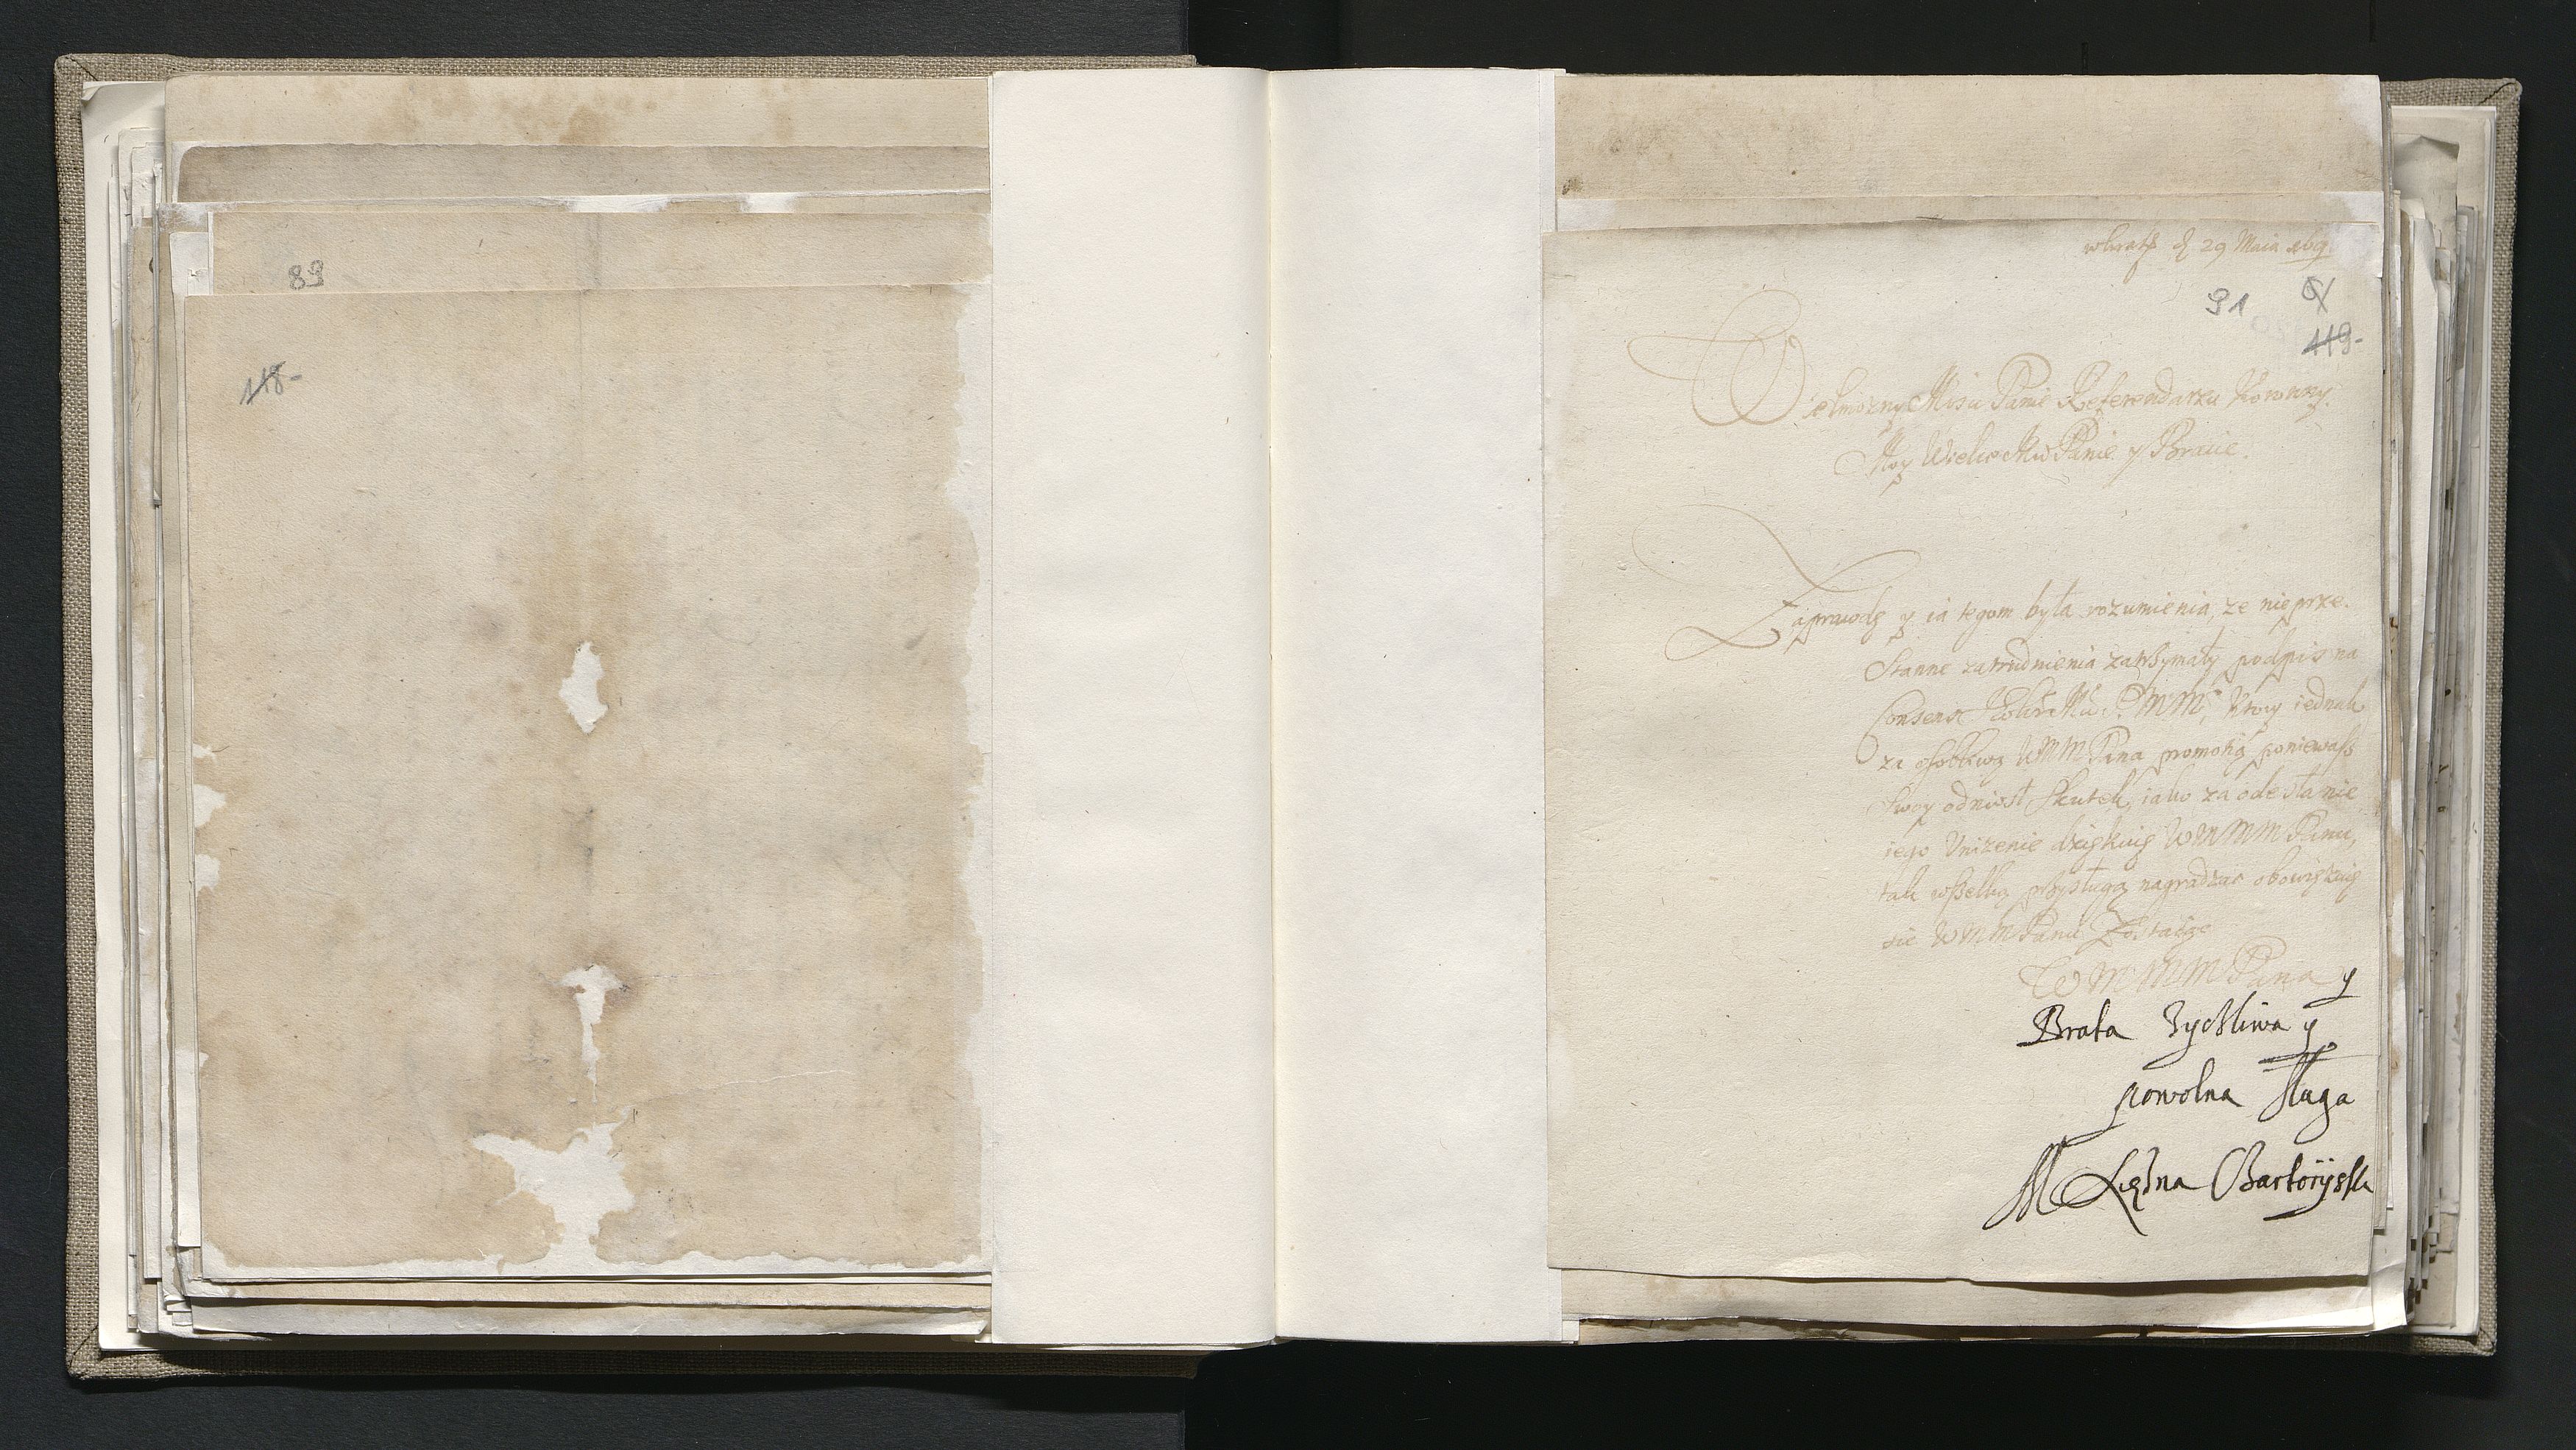 89
118-
d 29 Maia 169
91
119-
Wielmozny Msću Panie Referendarzu Koronny.
Moy Wielce Mśw Panie y Bracie.
Zaprawdę y ia tegom była rozumienia, ze nieprze-
stanne zatrudnienia zatrzymały podpis na
Consens MM, ktory iednak
za osobliwą WMMPana promotią poniewaß
swoy odniosł skutek, iako za odesłanie
iego Unizenie dziękuię WMMMPanu,
tak wßelką przysługą nagradzac obowiązuię
sie WMMPanu Zostaiąc
WMMMPana y
Brata Zyczliwa y
powolna sługa
M Xiężna Czartoryska